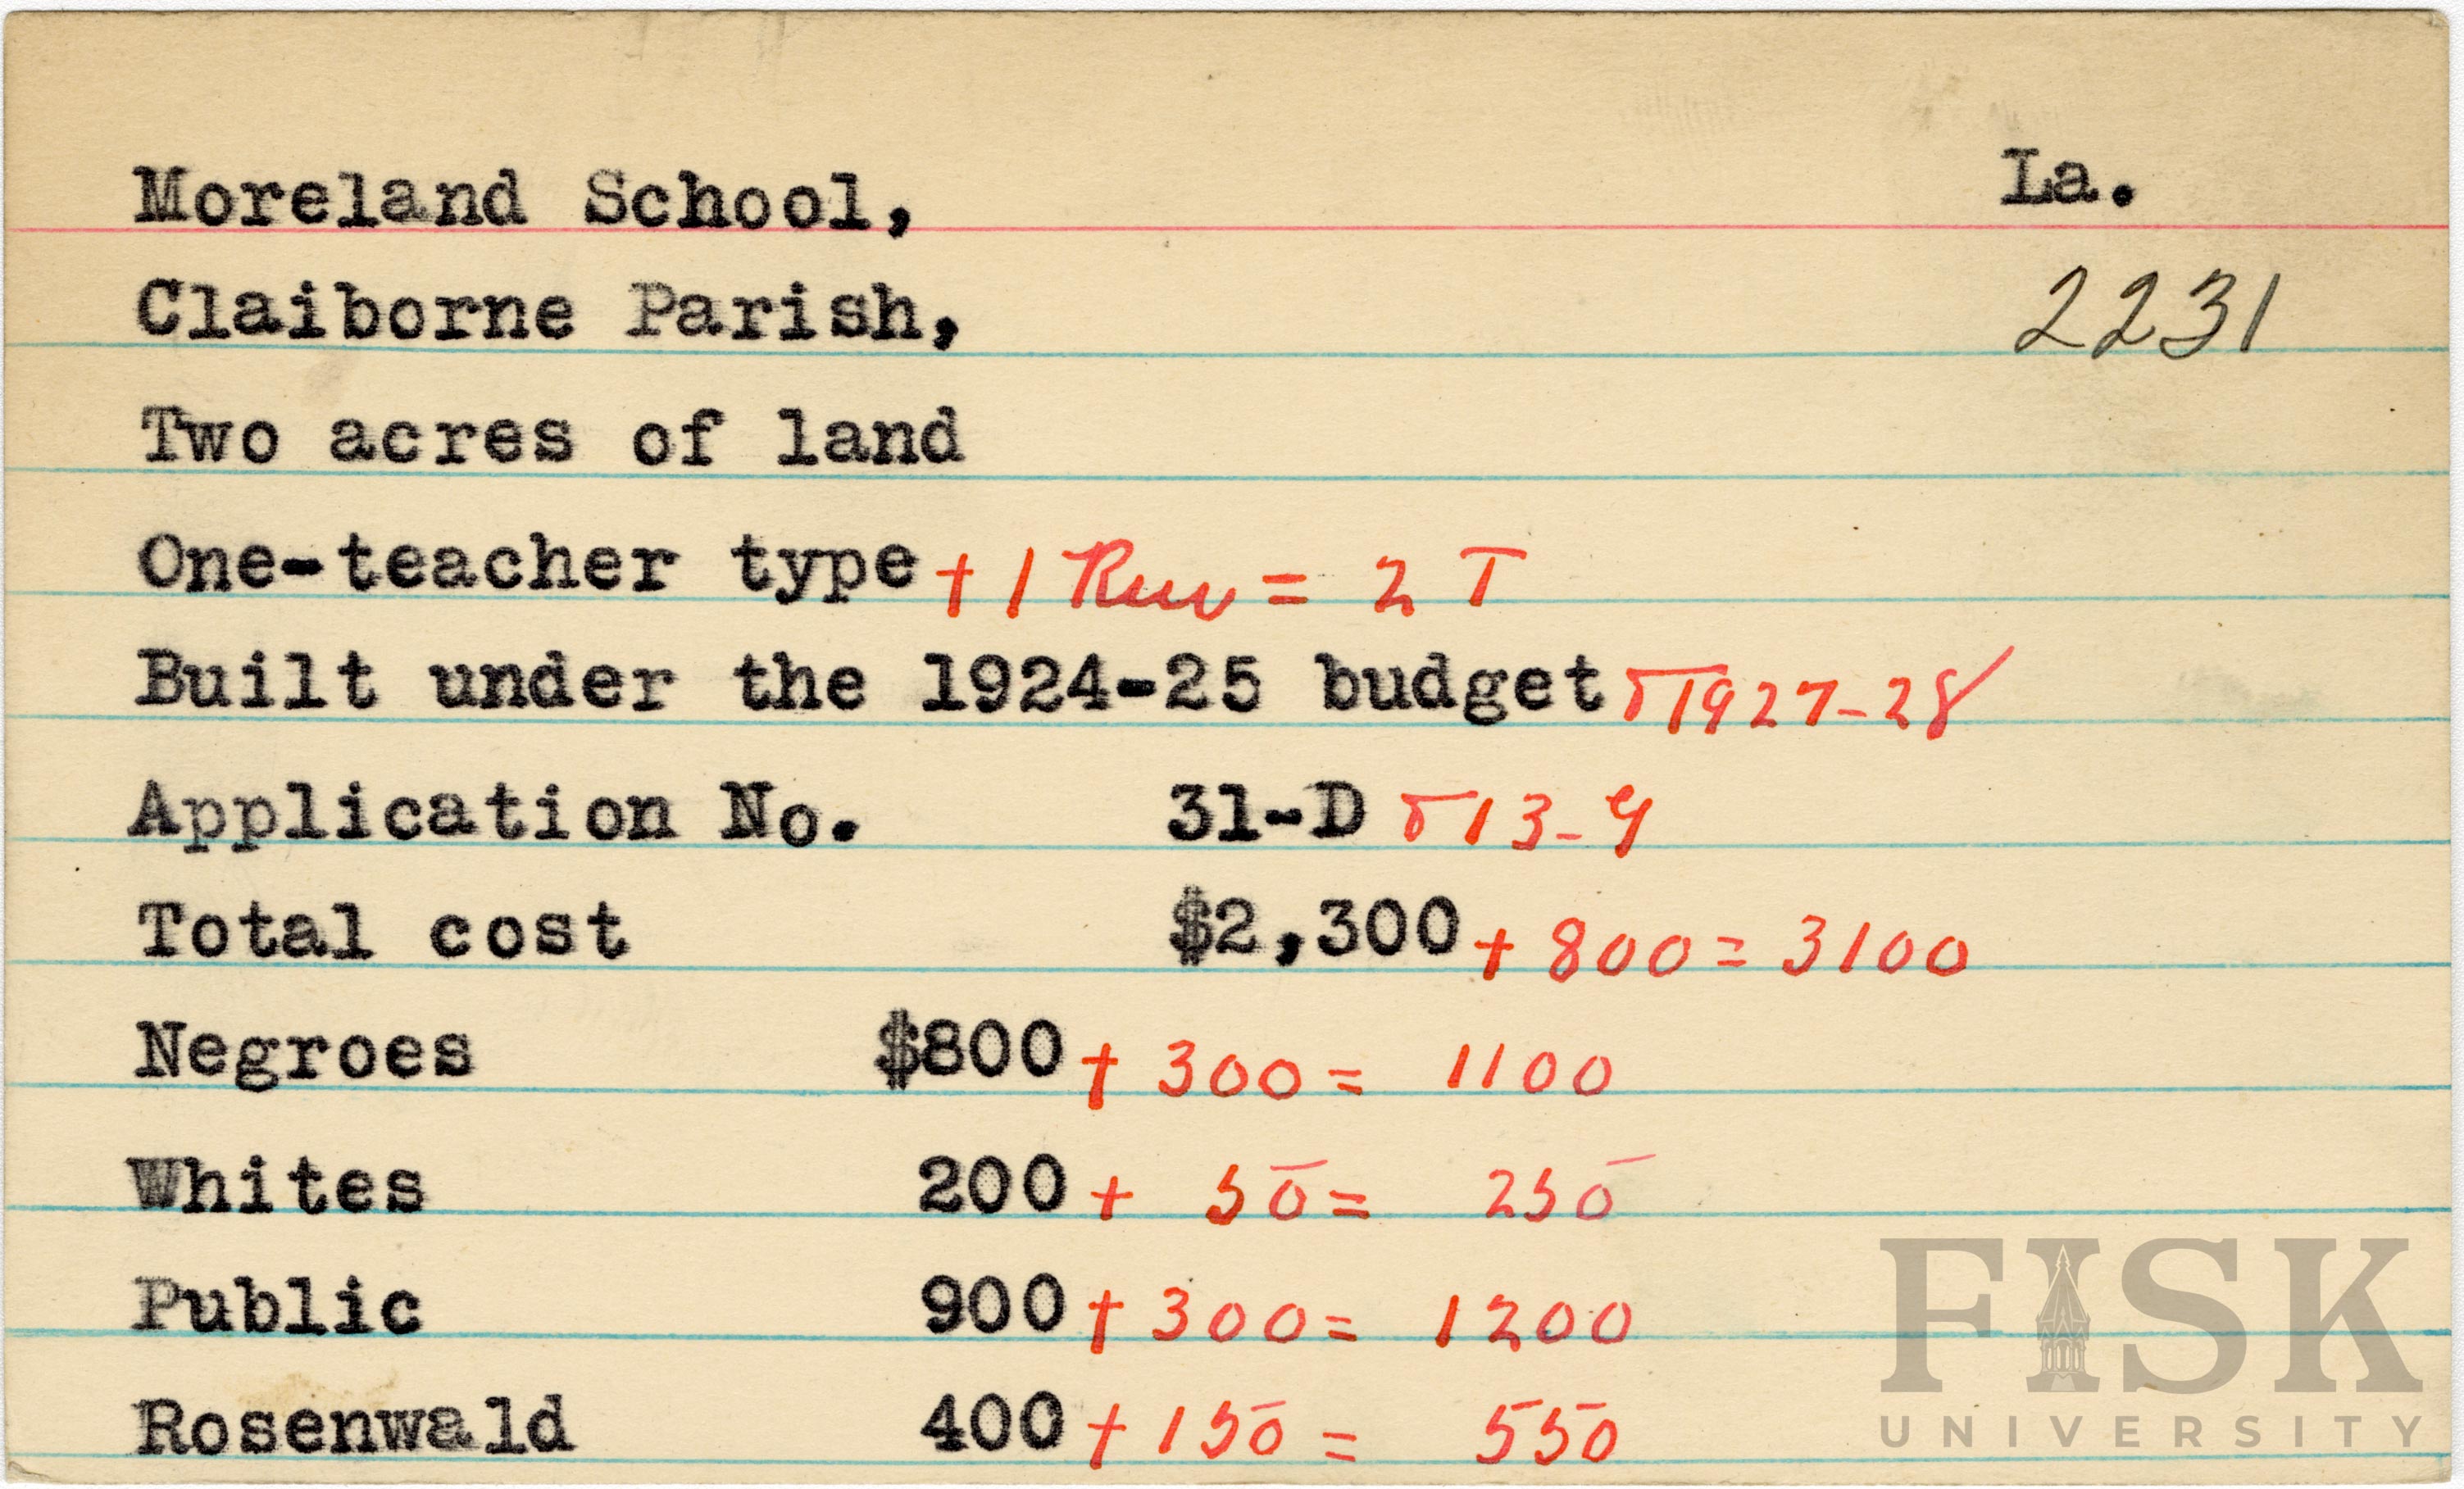 Moreland School, La.
Claiborne Parish, 2231
Two acres of land
One-teacher type + 1 Rm = 2 T
Built under the 1924-25 budget & 1927-28
Application No. 31-D & 13-G
Total cost $2,300 + 800 = 3100
Negroes $800 + 300 = 1100
Whites 200 + 50 = 250
Public 900 + 300 = 1200
Rosenwald 400 + 150 = 550
FISK
UNIVERSITY